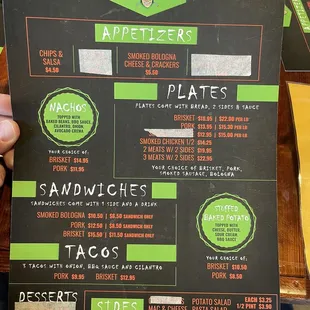 APPETIZERS
CHIPS &
SALSA
$4.50
SMOKED BOLOGNA
CHEESE & CRACKERS
$6.50
NACHOS
TOPPED WITH
BAKED BEANS, BBQ SAUCE,
CILANTRO, ONION,
AVOCADO CREMA
YOUR CHOICE OF:
BRISKET $14.95
PORK $11.95
PLATES
PLATES COME WITH BREAD, 2 SIDES & SAUCE
BRISKET $16.95 | $22.00 PER LB
PORK $13.95 | $15.50 PER LB
$12.95 | $15.00 PER LB
SMOKED CHICKEN 1/2 $14.25
2 MEATS W/ 2 SIDES $19.95
3 MEATS W/ 2 SIDES $22.95
YOUR CHOICE OF BRISKET, PORK,
SMOKED SAUSAGE, BOLOGNA
SANDWICHES
SANDWICHES COME WITH 1 SIDE AND A DRINK
SMOKED BOLOGNA $10.50 | $6.50 SANDWICH ONLY
PORK $12.50 | $8.50 SANDWICH ONLY
BRISKET $15.50 | $11.50 SANDWICH ONLY
STUFFED
BAKED POTATO
TOPPED WITH
CHEESE, BUTTER,
SOUR CREAM
BBQ SAUCE
YOUR CHOICE OF:
BRISKET $10.50
PORK $8.50
TACOS
3 TACOS WITH ONION, BBQ SAUCE AND CILANTRO
PORK $9.95 BRISKET $12.95
DESSERTS
SIDES
MAC & CHEESE
POTATO SALAD
PASTA SALAD
EACH $3.25
1/2 PINT $3.90